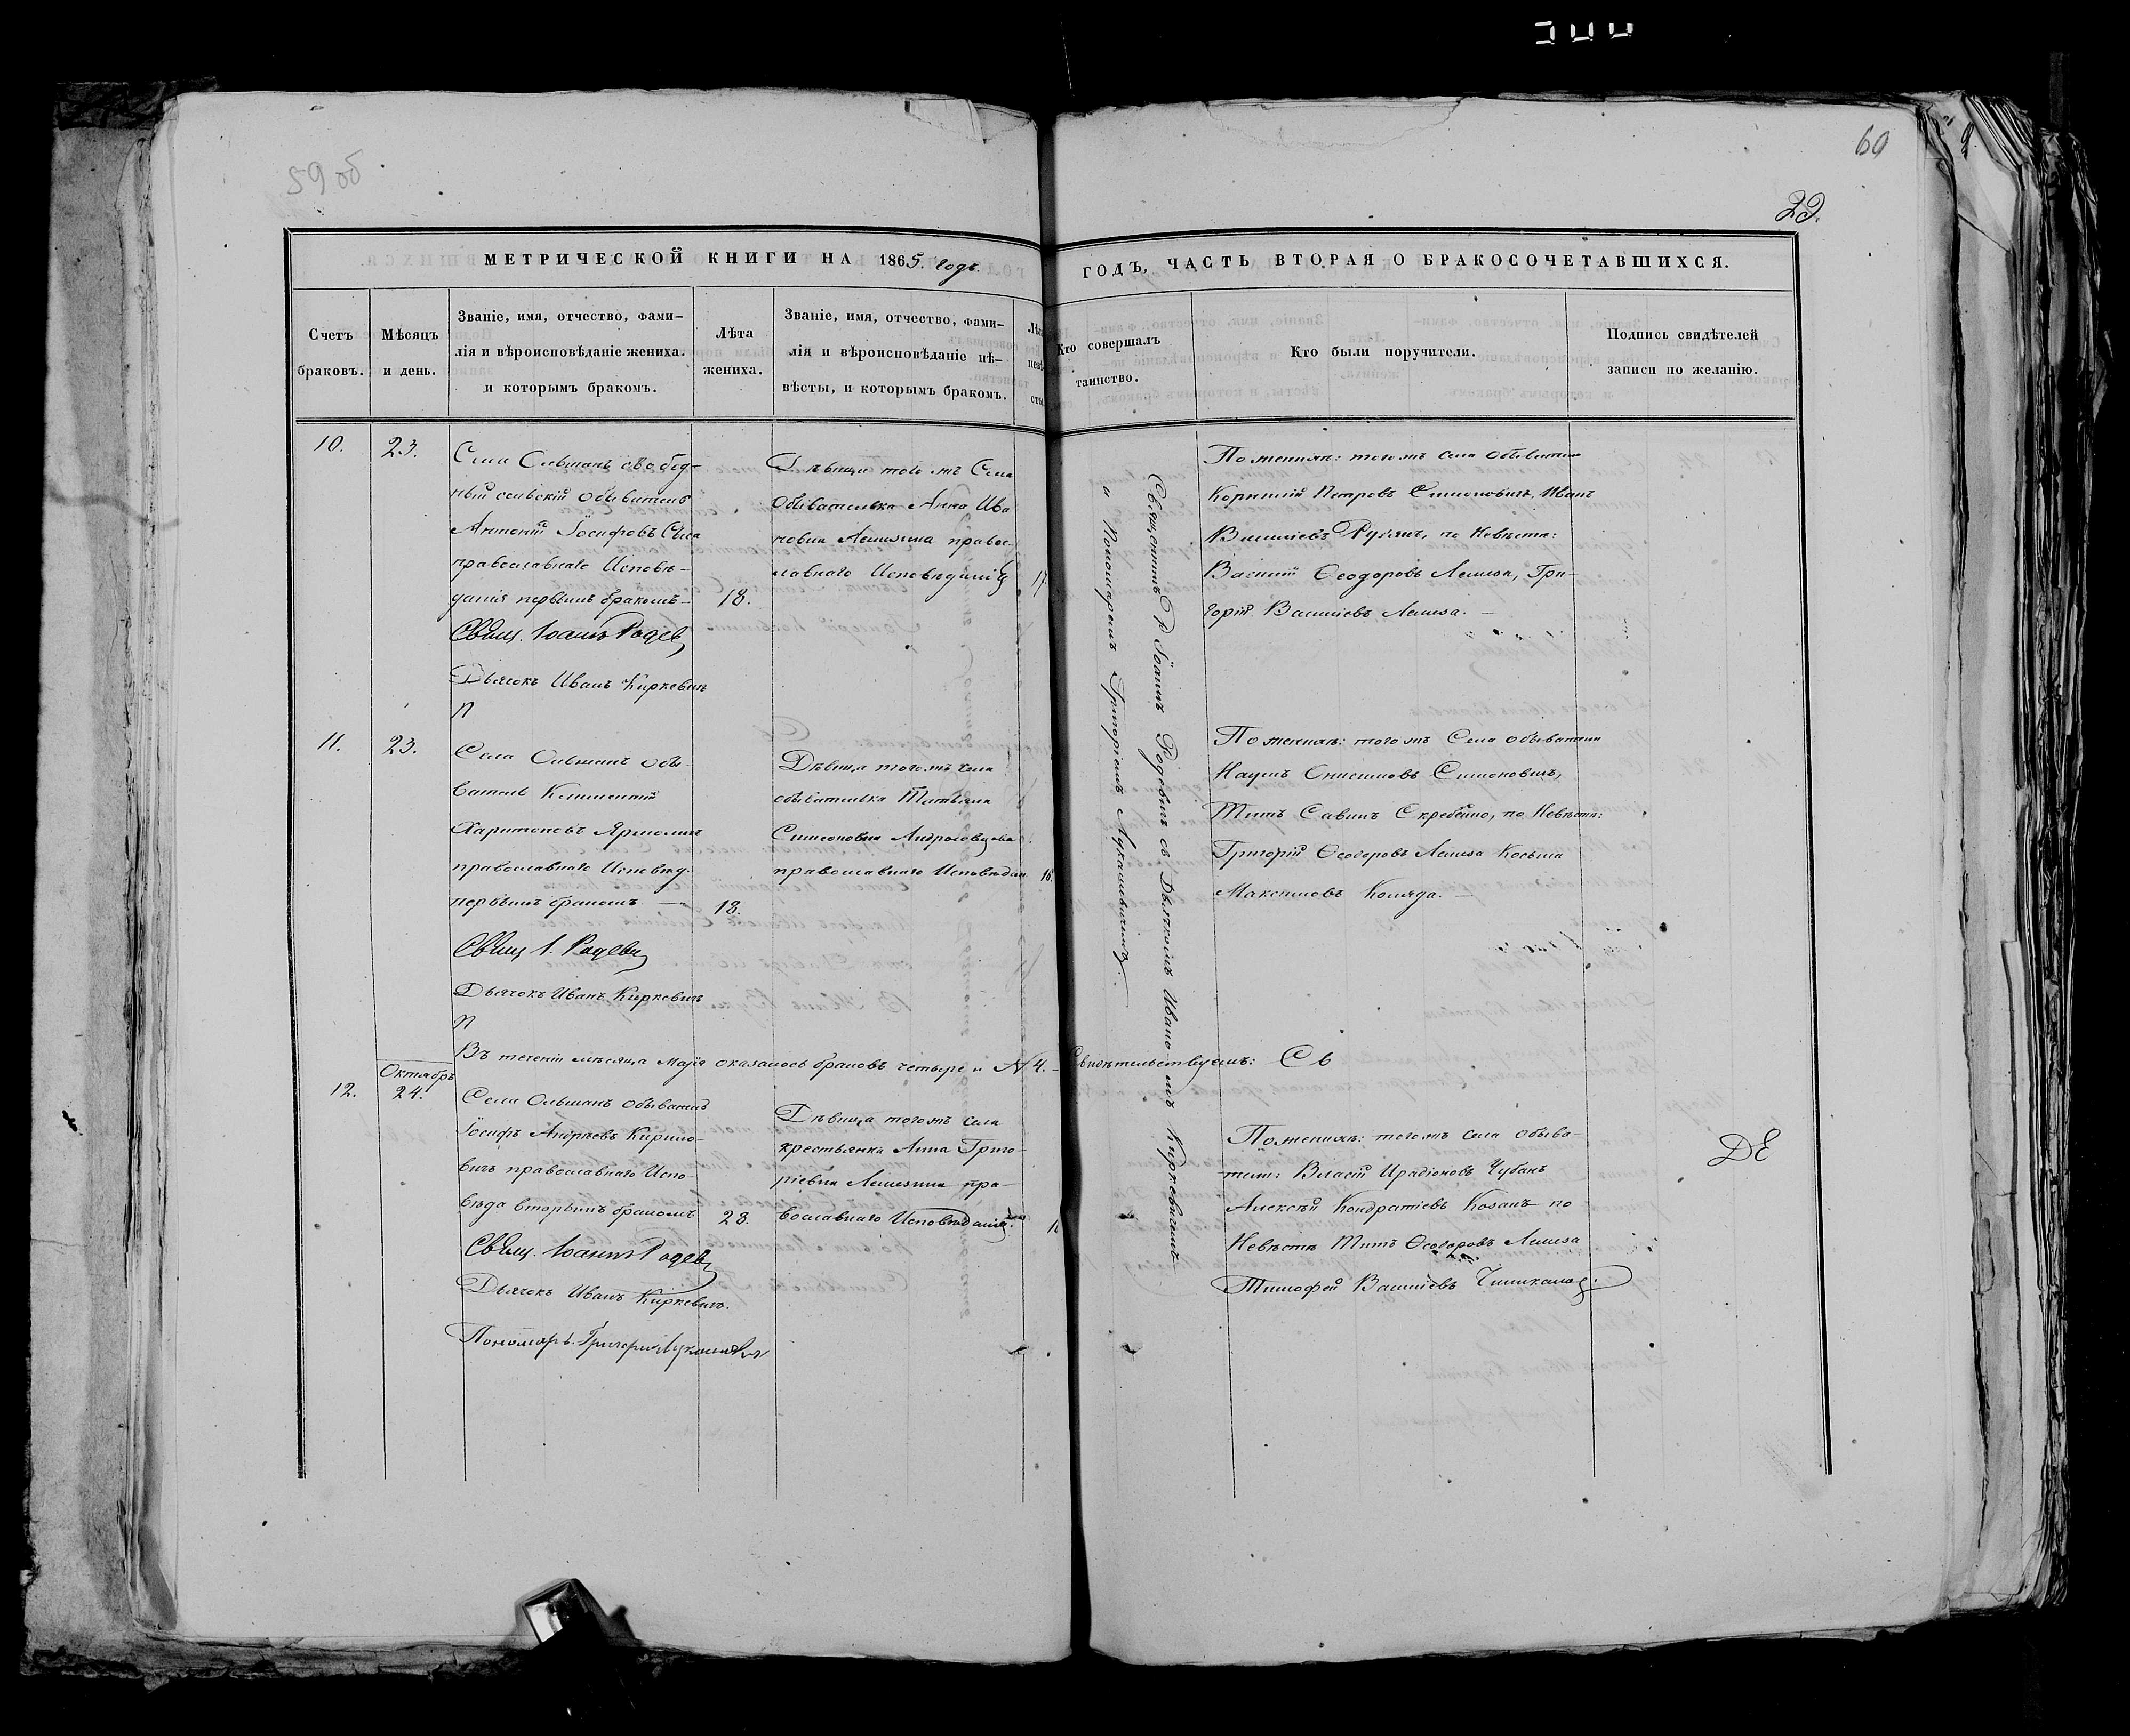 59 об
60
29.
МЕТРИЧЕСКОЙ КНИГИ НА 1865. годъ.
ГОДЪ, ЧАСТЬ ВТОРАЯ О БРАКОСОЧЕТАВШИХСЯ.
Счетъ
браковъ.
Мѣсяцъ
и день.
Званіе, имя, отчество, фами-
лія и вѣроисповѣданіе жениха.
и которымъ бракомъ.
Лѣта
жениха.
Званіе, имя, отчество, фами-
лія и вѣроисповѣданіе не-
вѣсты, и которымъ бракомъ.
Кто совершалъ
таинство.
Кто были поручители.
Подпись свидѣтелей
записи по желанію.
10.
23.
Села Ольшанъ свобод-
ный сельскій обыватель
Антоній Іосифовъ
православнаго Исповѣ-
данія первымъ бракомъ
Свящ. Іоаннъ Родев
Дьячокъ Иванъ Киркевичъ
П
18.
Дѣвица того жъ Села
Обывателька Анна Ива
новна Лемезина правос-
лавнаго Исповѣданія
17
Священникъ Іоаннъ Родевичъ съ Дьячкомъ Иваномъ Киркевичемъ
и Пономаремъ Григоріемъ Лукашевичемъ.
По женихѣ: тогожъ села обыватели
Корнилій Петровъ Симоновичъ, Иванъ
Василіевъ по Невѣстѣ:
Ѳеодоровъ Лемеза, Гри-
горій Василіевъ Лемеза.
11.
23.
Села Ольшанъ обы-
ватель Климентій
Харитоновъ Ярмоличъ
православнаго Исповѣд.
первымъ бракомъ.
Свящ І. Родеви
Дьячокъ Иванъ Киркевичъ
П
18.
Дѣвица тогожъ села
обывателька Татьяна
Симеоновна
православнаго Исповѣдан
По женихѣ: тогожъ Села обыватели
Наумъ Онисимовъ Симоновичъ,
Титъ Савинъ Скребейно, по Невѣстѣ:
Григорій Ѳеодоровъ Лемеза Косьма
Максимовъ Коляда.
Въ теченіи мѣсяца Маія оказалось браковъ четыре и № 4. Свидѣтельствуемъ: Съ
Октябрь
12.
24.
Села Ольшанъ обыватель
Іосифъ Андреевъ Кирило-
вичъ православнаго Испо-
вѣда вторымъ бракомъ
Свящ. Іоаннъ Родев
Дьячокъ Иванъ Киркевичъ.
Пономарь Григорій Лукашевич
28.
Дѣвица тогожъ села
крестьянка Анна Григо-
ріевна Лемезина пра-
вославнаго Исповѣданія.
По женихѣ: тогожъ села обыва-
тели: Власій Иродіоновъ Чубанъ
Алексѣй Кондратіевъ Козакъ по
Невѣстѣ Титъ Ѳеодоровъ Лемеза
Тимофей Василіевъ